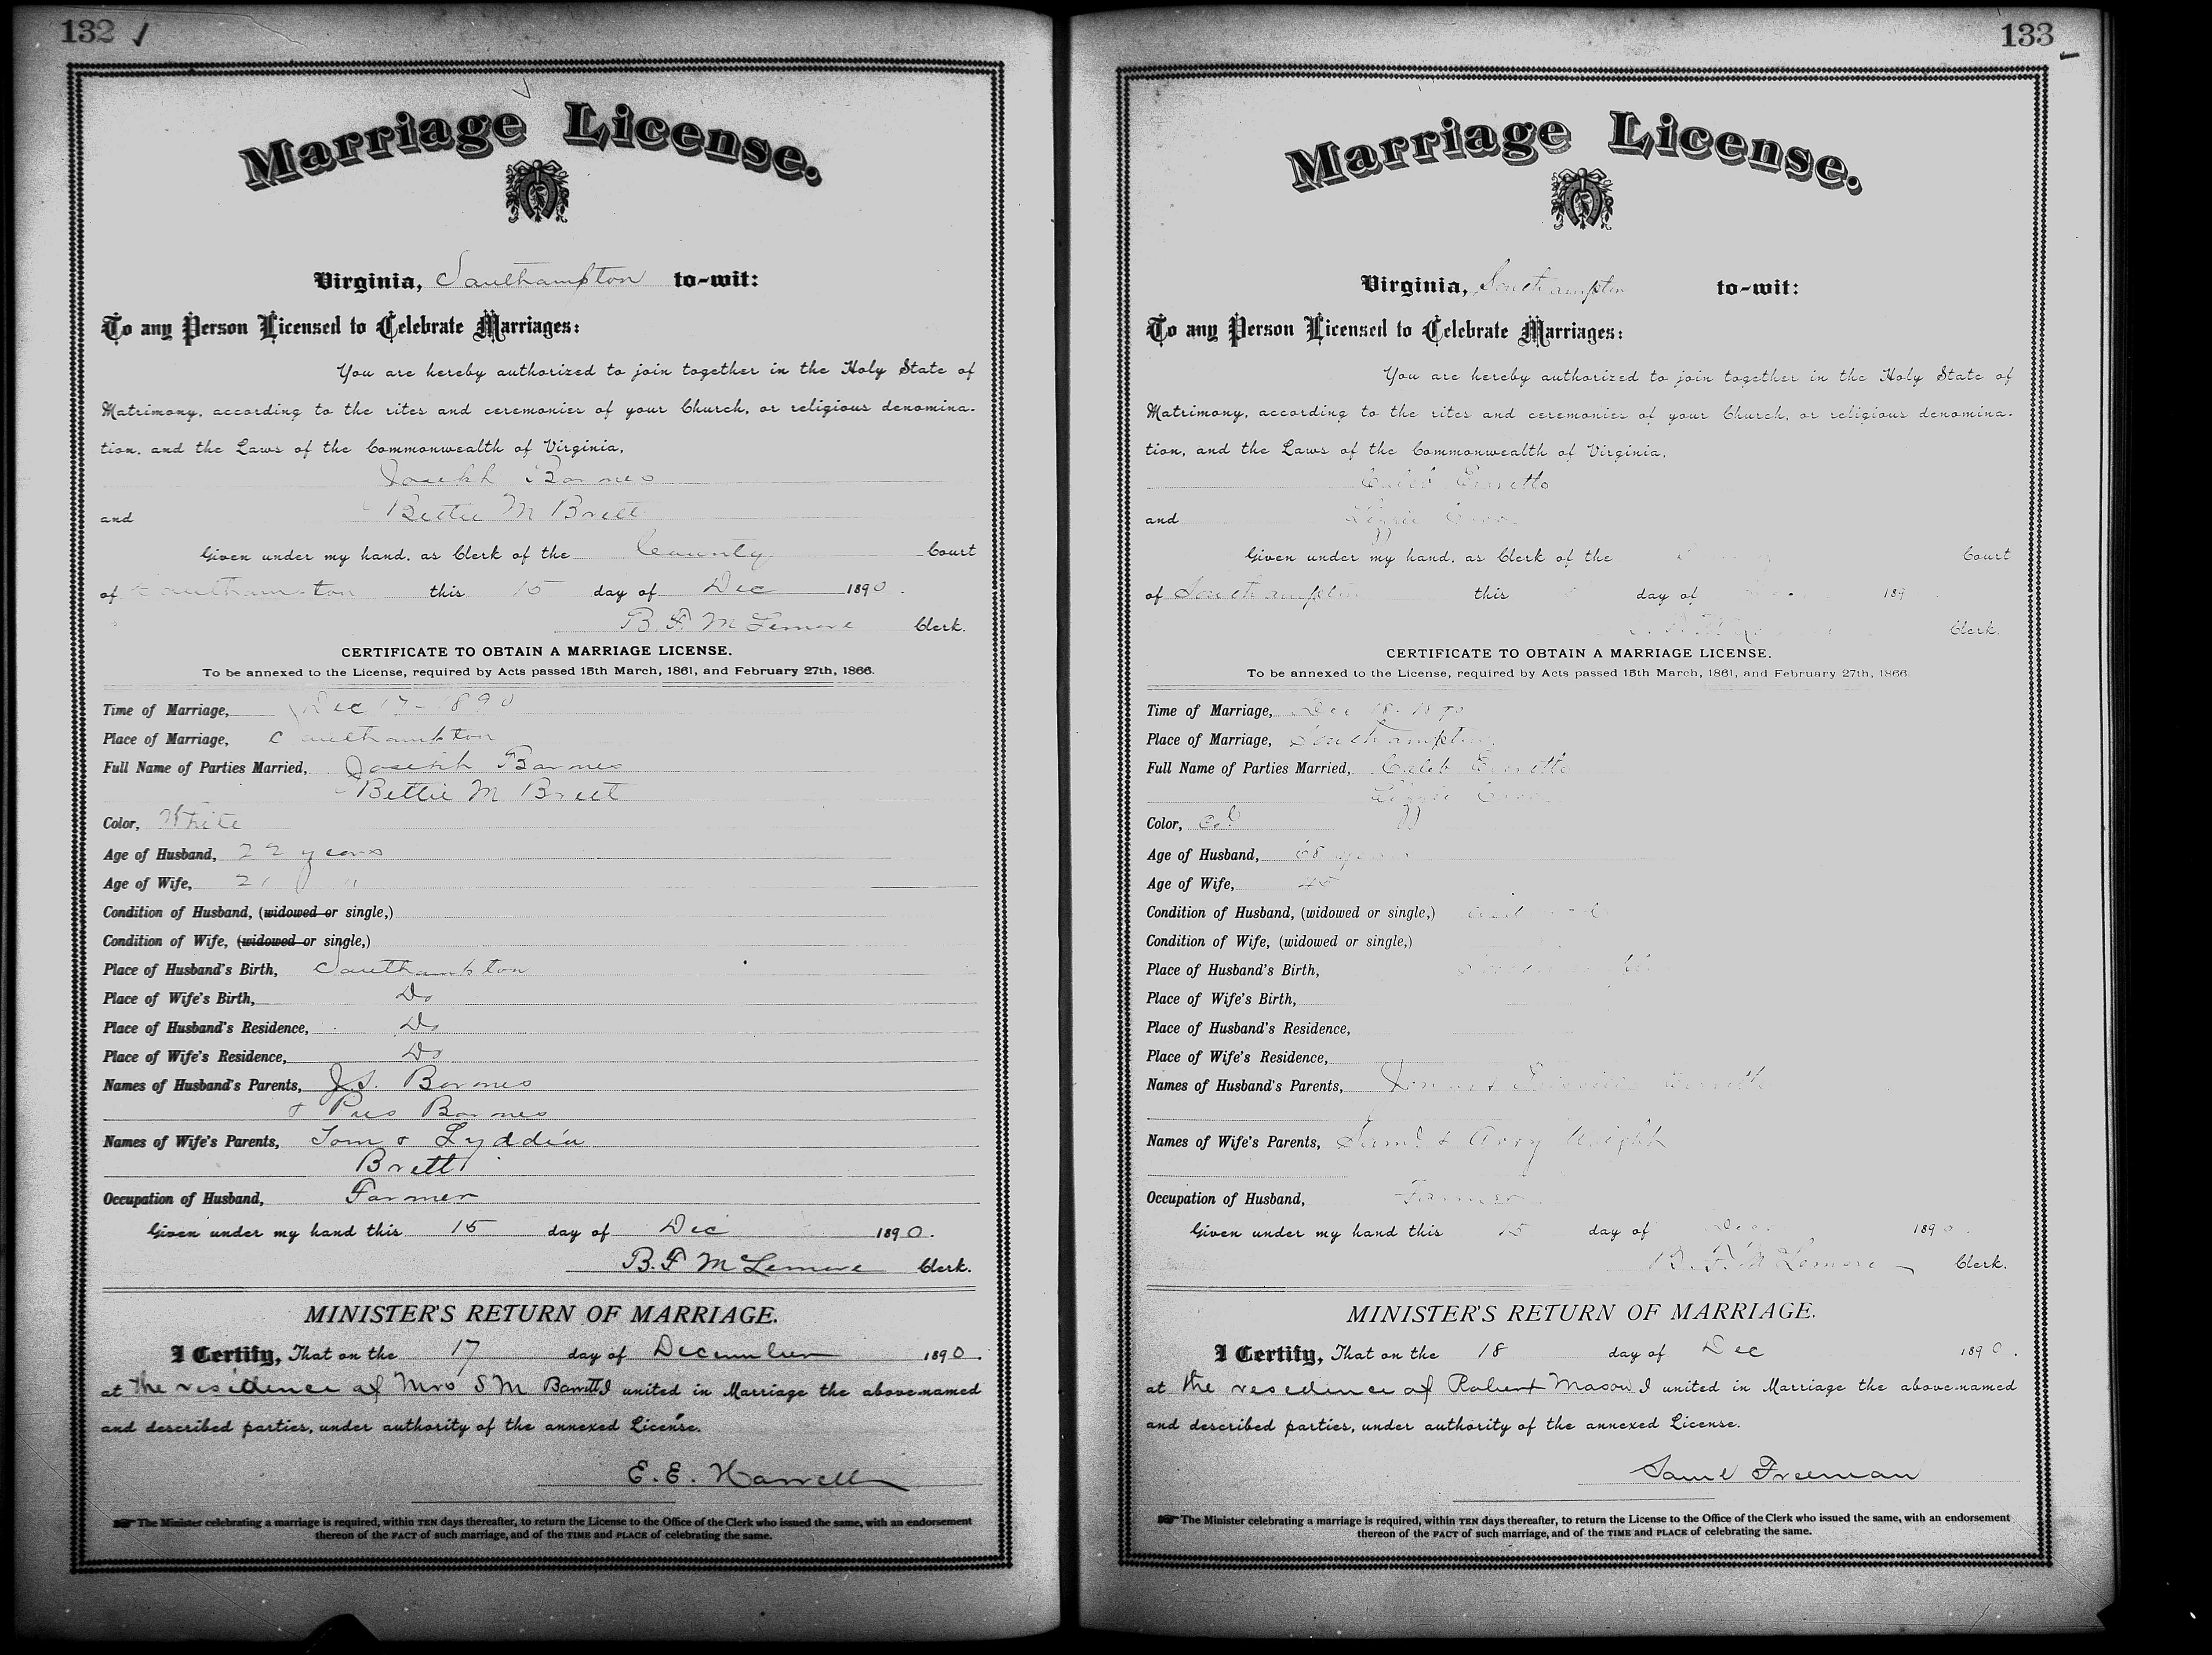 132
Marriage License.
Virginia, Southampton to-wit:
To any Person Licensed to Celebrate Marriages:
You are hereby authorized to join together in the Holy State of
Matrimony, according to the rites and ceremonies of your Church, or religious denomina-
tion, and the Laws of the Commonwealth of Virginia,
Joseph Barnes
and Bettie M Brett
Given under my hand, as Clerk of the County Court
of Southampton this 15 day of Dec 1890.
B. F. McLemore Clerk.
CERTIFICATE TO OBTAIN A MARRIAGE LICENSE.
To be annexed to the License, required by Acts passed 15th March, 1861, and February 27th, 1866.
Time of Marriage, Dec 17-1890
Place of Marriage, Southampton
Full Name of Parties Married, Joseph Barnes
Bettie M Brett
Color, White
Age of Husband, 22 years
Age of Wife, 21 "
Condition of Husband, (widowed or single,)
Condition of Wife, (widowed or single,)
Place of Husband's Birth, Southampton
Place of Wife's Birth, Do
Place of Husband's Residence, Do
Place of Wife's Residence, Do
Names of Husband's Parents, J.S. Barnes
& Pris Barnes
Names of Wife's Parents, Tom & Lyddia
Brett
Occupation of Husband, Farmer
Given under my hand this 15 day of Dec 1890.
B. F McLemore Clerk.
MINISTER'S RETURN OF MARRIAGE.
I Certify, That on the 17 day of December 1890.
at the residence of Mrs S M I united in Marriage the above-named
and described parties, under authority of the annexed License.
E. E. Harrell
The Minister celebrating a marriage is required, within TEN days thereafter, to return the License to the Office of the Clerk who issued the same, with an endorsement
thereon of the FACT of such marriage, and of the TIME and PLACE of celebrating the same.
133
Marriage License.
Virginia, Southampton to-wit:
To any Person Licensed to Celebrate Marriages:
You are hereby authorized to join together in the Holy State of
Matrimony, according to the rites and ceremonies of your Church, or religious denomina-
tion, and the Laws of the Commonwealth of Virginia,
Caleb
and Lizzie
Given under my hand, as Clerk of the Court
of Southampton this day of 189
Clerk.
CERTIFICATE TO OBTAIN A MARRIAGE LICENSE.
To be annexed to the License, required by Acts passed 15th March, 1861, and February 27th, 1866.
Time of Marriage, Dec 18-1890
Place of Marriage, Southampton
Full Name of Parties Married, Caleb
Lizzie
Color, Col
Age of Husband, years
Age of Wife, 45
Condition of Husband, (widowed or single,) widowed
Condition of Wife, (widowed or single,)
Place of Husband's Birth, Southampton
Place of Wife's Birth,
Place of Husband's Residence,
Place of Wife's Residence,
Names of Husband's Parents,
Names of Wife's Parents, Saml & Avey Wright
Occupation of Husband, Farmer
Given under my hand this 15 day of Dec 1890.
B. F. McLemore Clerk.
MINISTER'S RETURN OF MARRIAGE.
I Certify, That on the 18 day of Dec 1890.
at the residence of Robert Mason I united in Marriage the above-named
and described parties, under authority of the annexed License.
Saml Freeman
The Minister celebrating a marriage is required, within TEN days thereafter, to return the License to the Office of the Clerk who issued the same, with an endorsement
thereon of the FACT of such marriage, and of the TIME and PLACE of celebrating the same.